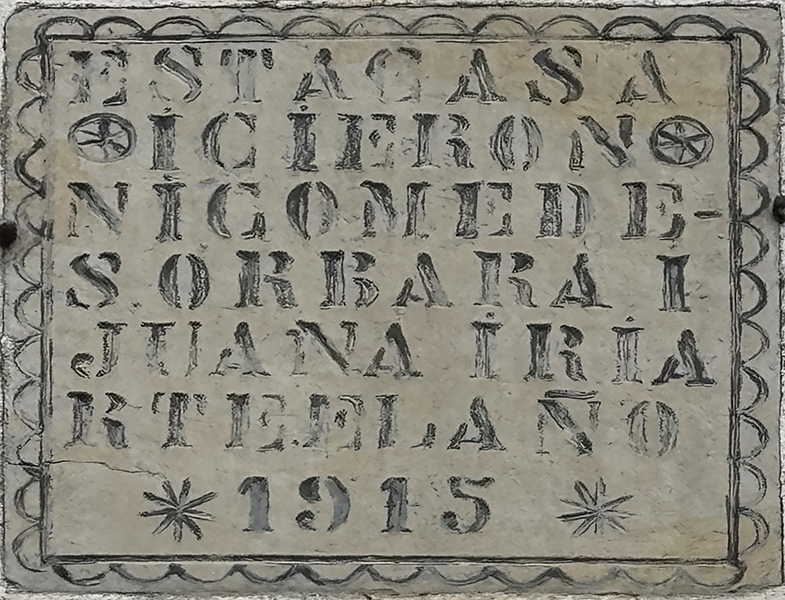 ESTACASA
İCİERON
NİGOMEDE-
SORBARAİ
JUANA İRİA
RTEELAÑO
1915